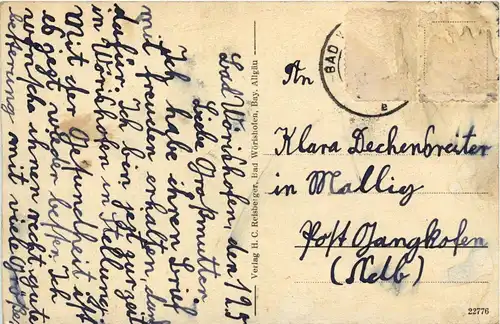 Bad Wörishofen den 19.8
Liebe Großmutter
Ich habe ihren Brief
mit freuden erhalten, danke
dafür. Ich bin jezt zurzeit
in Wörishofen in Stellung.
Mit der Gesundheit ist
es jezt wieder besser. Ich
wünsche ihnen recht gute
besserung mit viele Grüße
Verlag H. C. Reisberger, Bad Wörishofen, Bay. Allgäu
BAD
e
An
Klara Dechenbreiter
in Mallig
Post Gangkofen
(Ndb)
22776